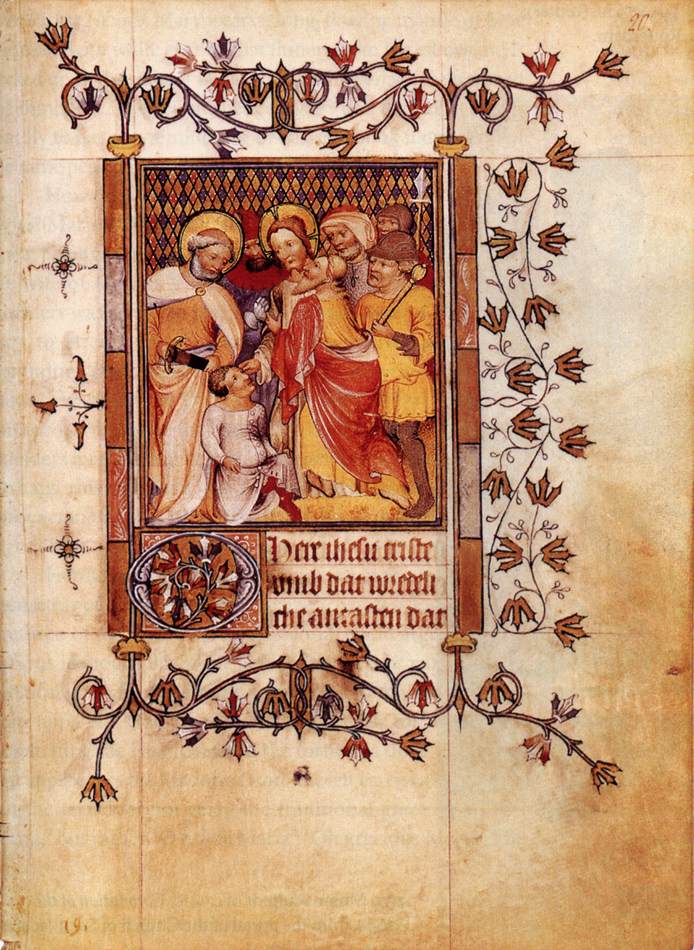 20.
O heir ihesu criste
omb dat wredeli
che antasten dat